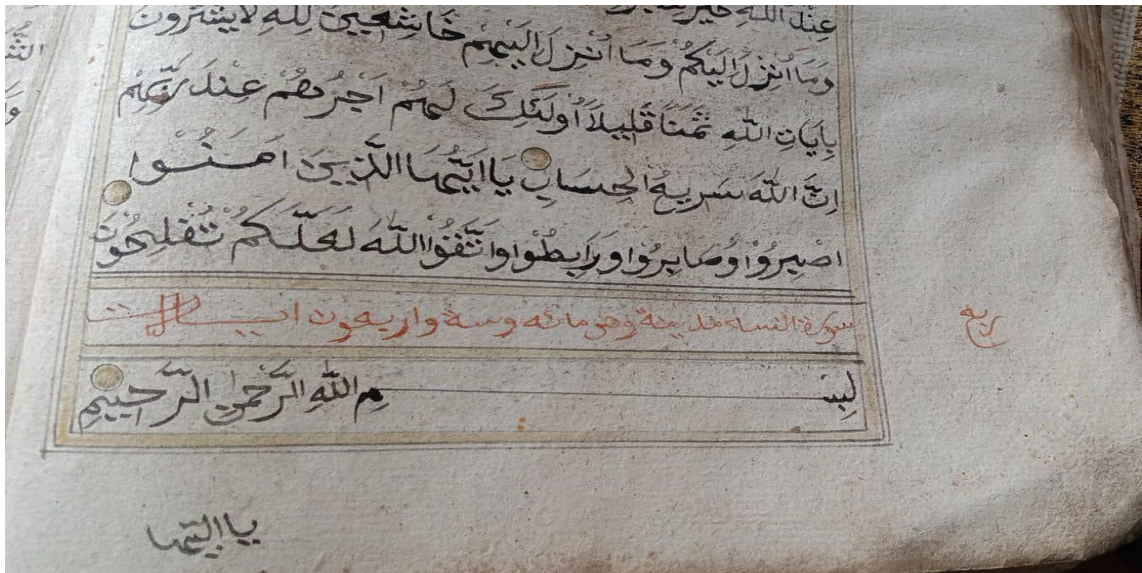 عِنْدَ اللّٰهِ خَيْرٌ
وَمَا اُنْزِلَ اِلَيْكُمْ وَمَا اُنْزِلَ اِلَيْهِمْ خَاشِعِيْنَ لِلّٰهِ لَا يَشْتَرُوْنَ
بِاٰيَاتِ اللّٰهِ ثَمَنًا قَلِيْلًا اُولٰئِكَ لَهُمْ اَجْرُهُمْ عِنْدَ رَبِّهِمْ
اِنَّ اللّٰهَ سَرِيْعُ الْحِسَابِ يَا اَيُّهَا الَّذِيْنَ اٰمَنُوْا
اصْبِرُوْا وَصَابِرُوْا وَرَابِطُوْا وَاتَّقُوا اللّٰهَ لَعَلَّكُمْ تُفْلِحُوْنَ
سورة النساء مدينة وهو مائه وستة واربعون
ربع
بِسْمِ اللّٰهِ الرَّحْمٰنِ الرَّحِيْمِ
يا ايها